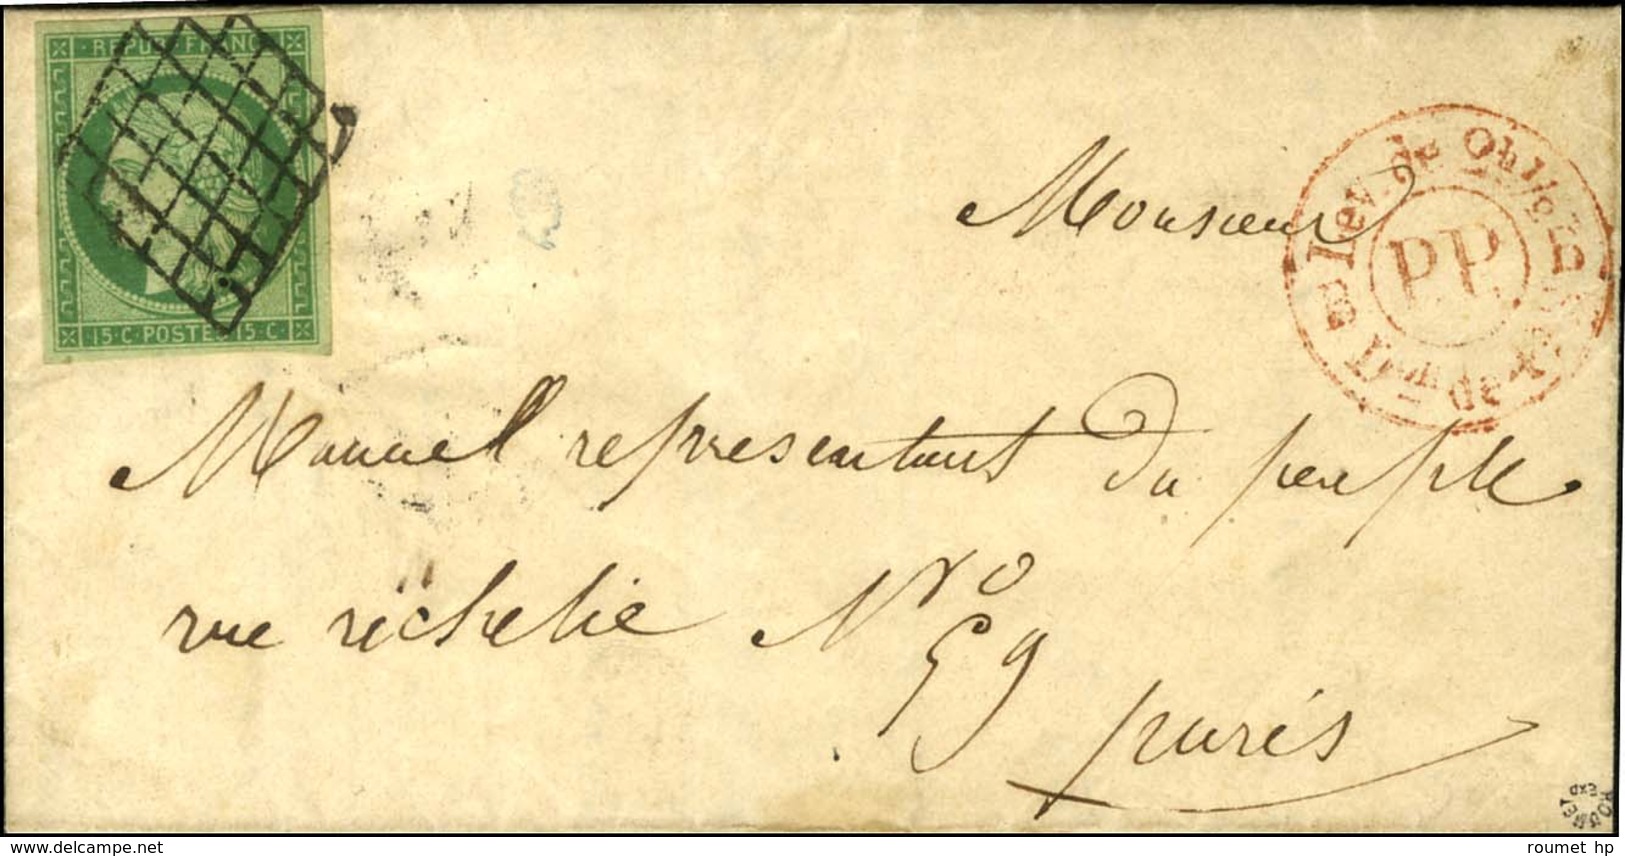 REPUB FRANC
15·C·POSTES·15·C·
PP
Lev. de
Monsieur
Manuel representant du peuple
rue richelie Nro
59
paris
ROUMET
EXP
www.delcampe.net
roumet hp